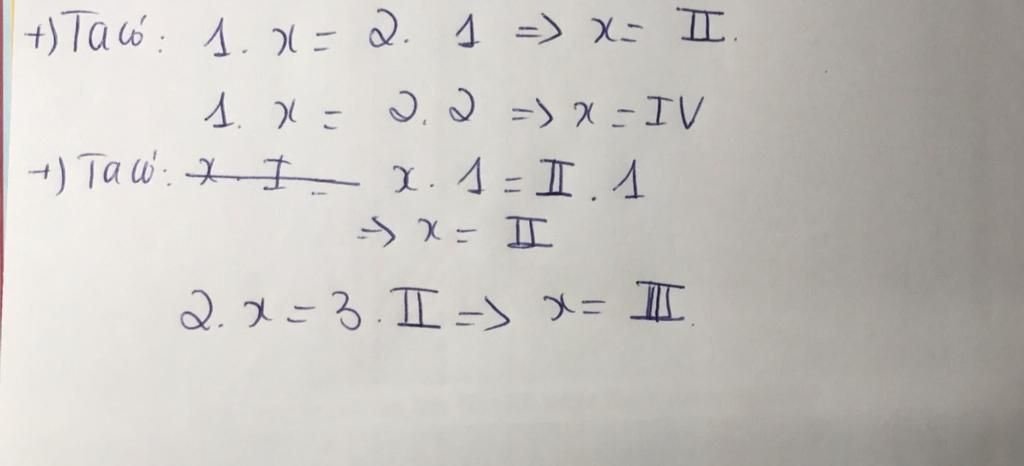 +) Ta có: 1. x = 2. 1 => x = II.
1. x = 2. 2 => x = IV
+) Ta có: x . 1 = II . 1
=> x = II
2. x = 3. II => x = III.